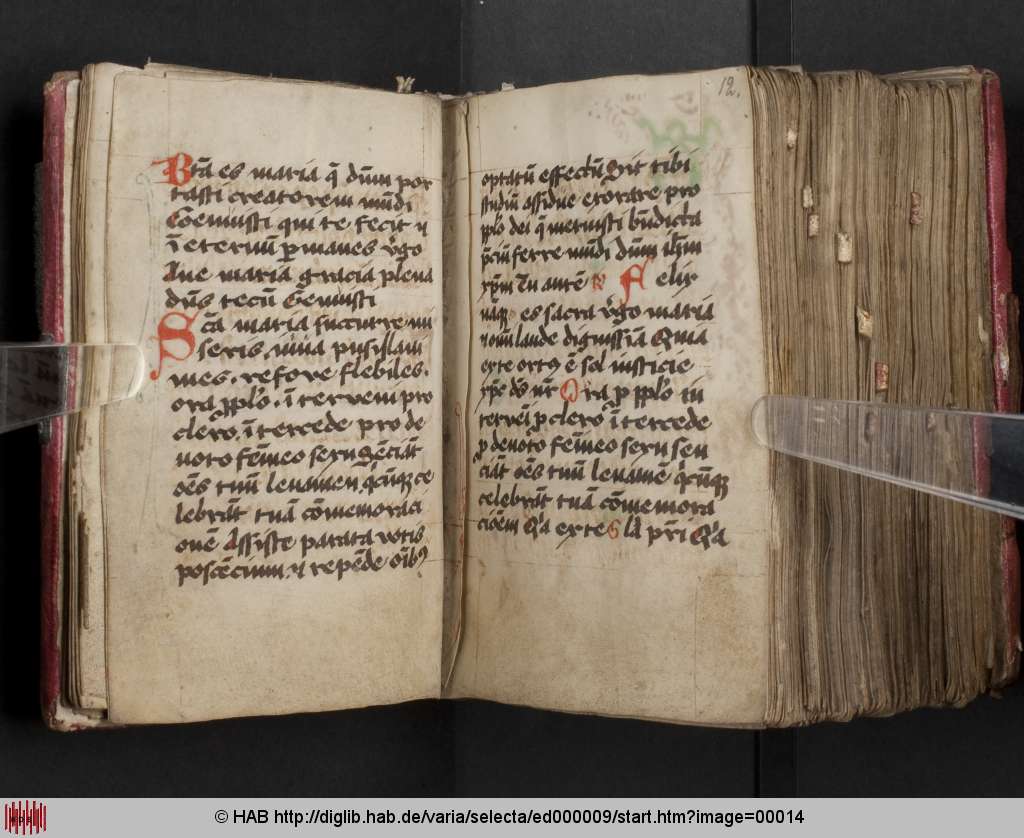 Btā es maria q̄ dn̄m por
tasti creatorem mūdi
Genuisti qui te fecit ⁊
ī eternū ꝑmanes v̾go
Aue maria gracia plena
dn̄s tecū Genuisti
Scā maria succurre mi
seris. iuua pusillani
mes. refove flebiles.
ora ꝓ pplo. ī terveni pro
clero. ī tercede pro de
uoto femīeo sexu Senciāt
oēs tuū leuamen, q̇cūqꝫ ce
lebrāt tuā cōmemoraci
onē Assiste parata votis
poscēcium. ⁊ repēde oīb⁹
12.
optatū effectū Sit tibi
studiū assidue exorare pro
pplo dei q̄ meruisti bn̄dicta
p̄ciū ferre mūdi dn̄m ihm̄
xp̄m Tu autē R Felix
naqꝫ es sacra v̾go maria
⁊ om̄i laude digniss̄ia Quia
ex te ort⁹ ē sol iusticie
xp̄c de⁹ nr̄ Ora ꝓ pplo in
terveī ꝓ clero ī tercede
ꝓ devoto femīeo sexu sen
ciāt oēs tuū leuamē q̇cūqꝫ
celebrāt tuā cōmemora
cioēm Q̇a ex te Gla pr̄i Q̇a
© HAB http://diglib.hab.de/varia/selecta/ed000009/start.htm?image=00014